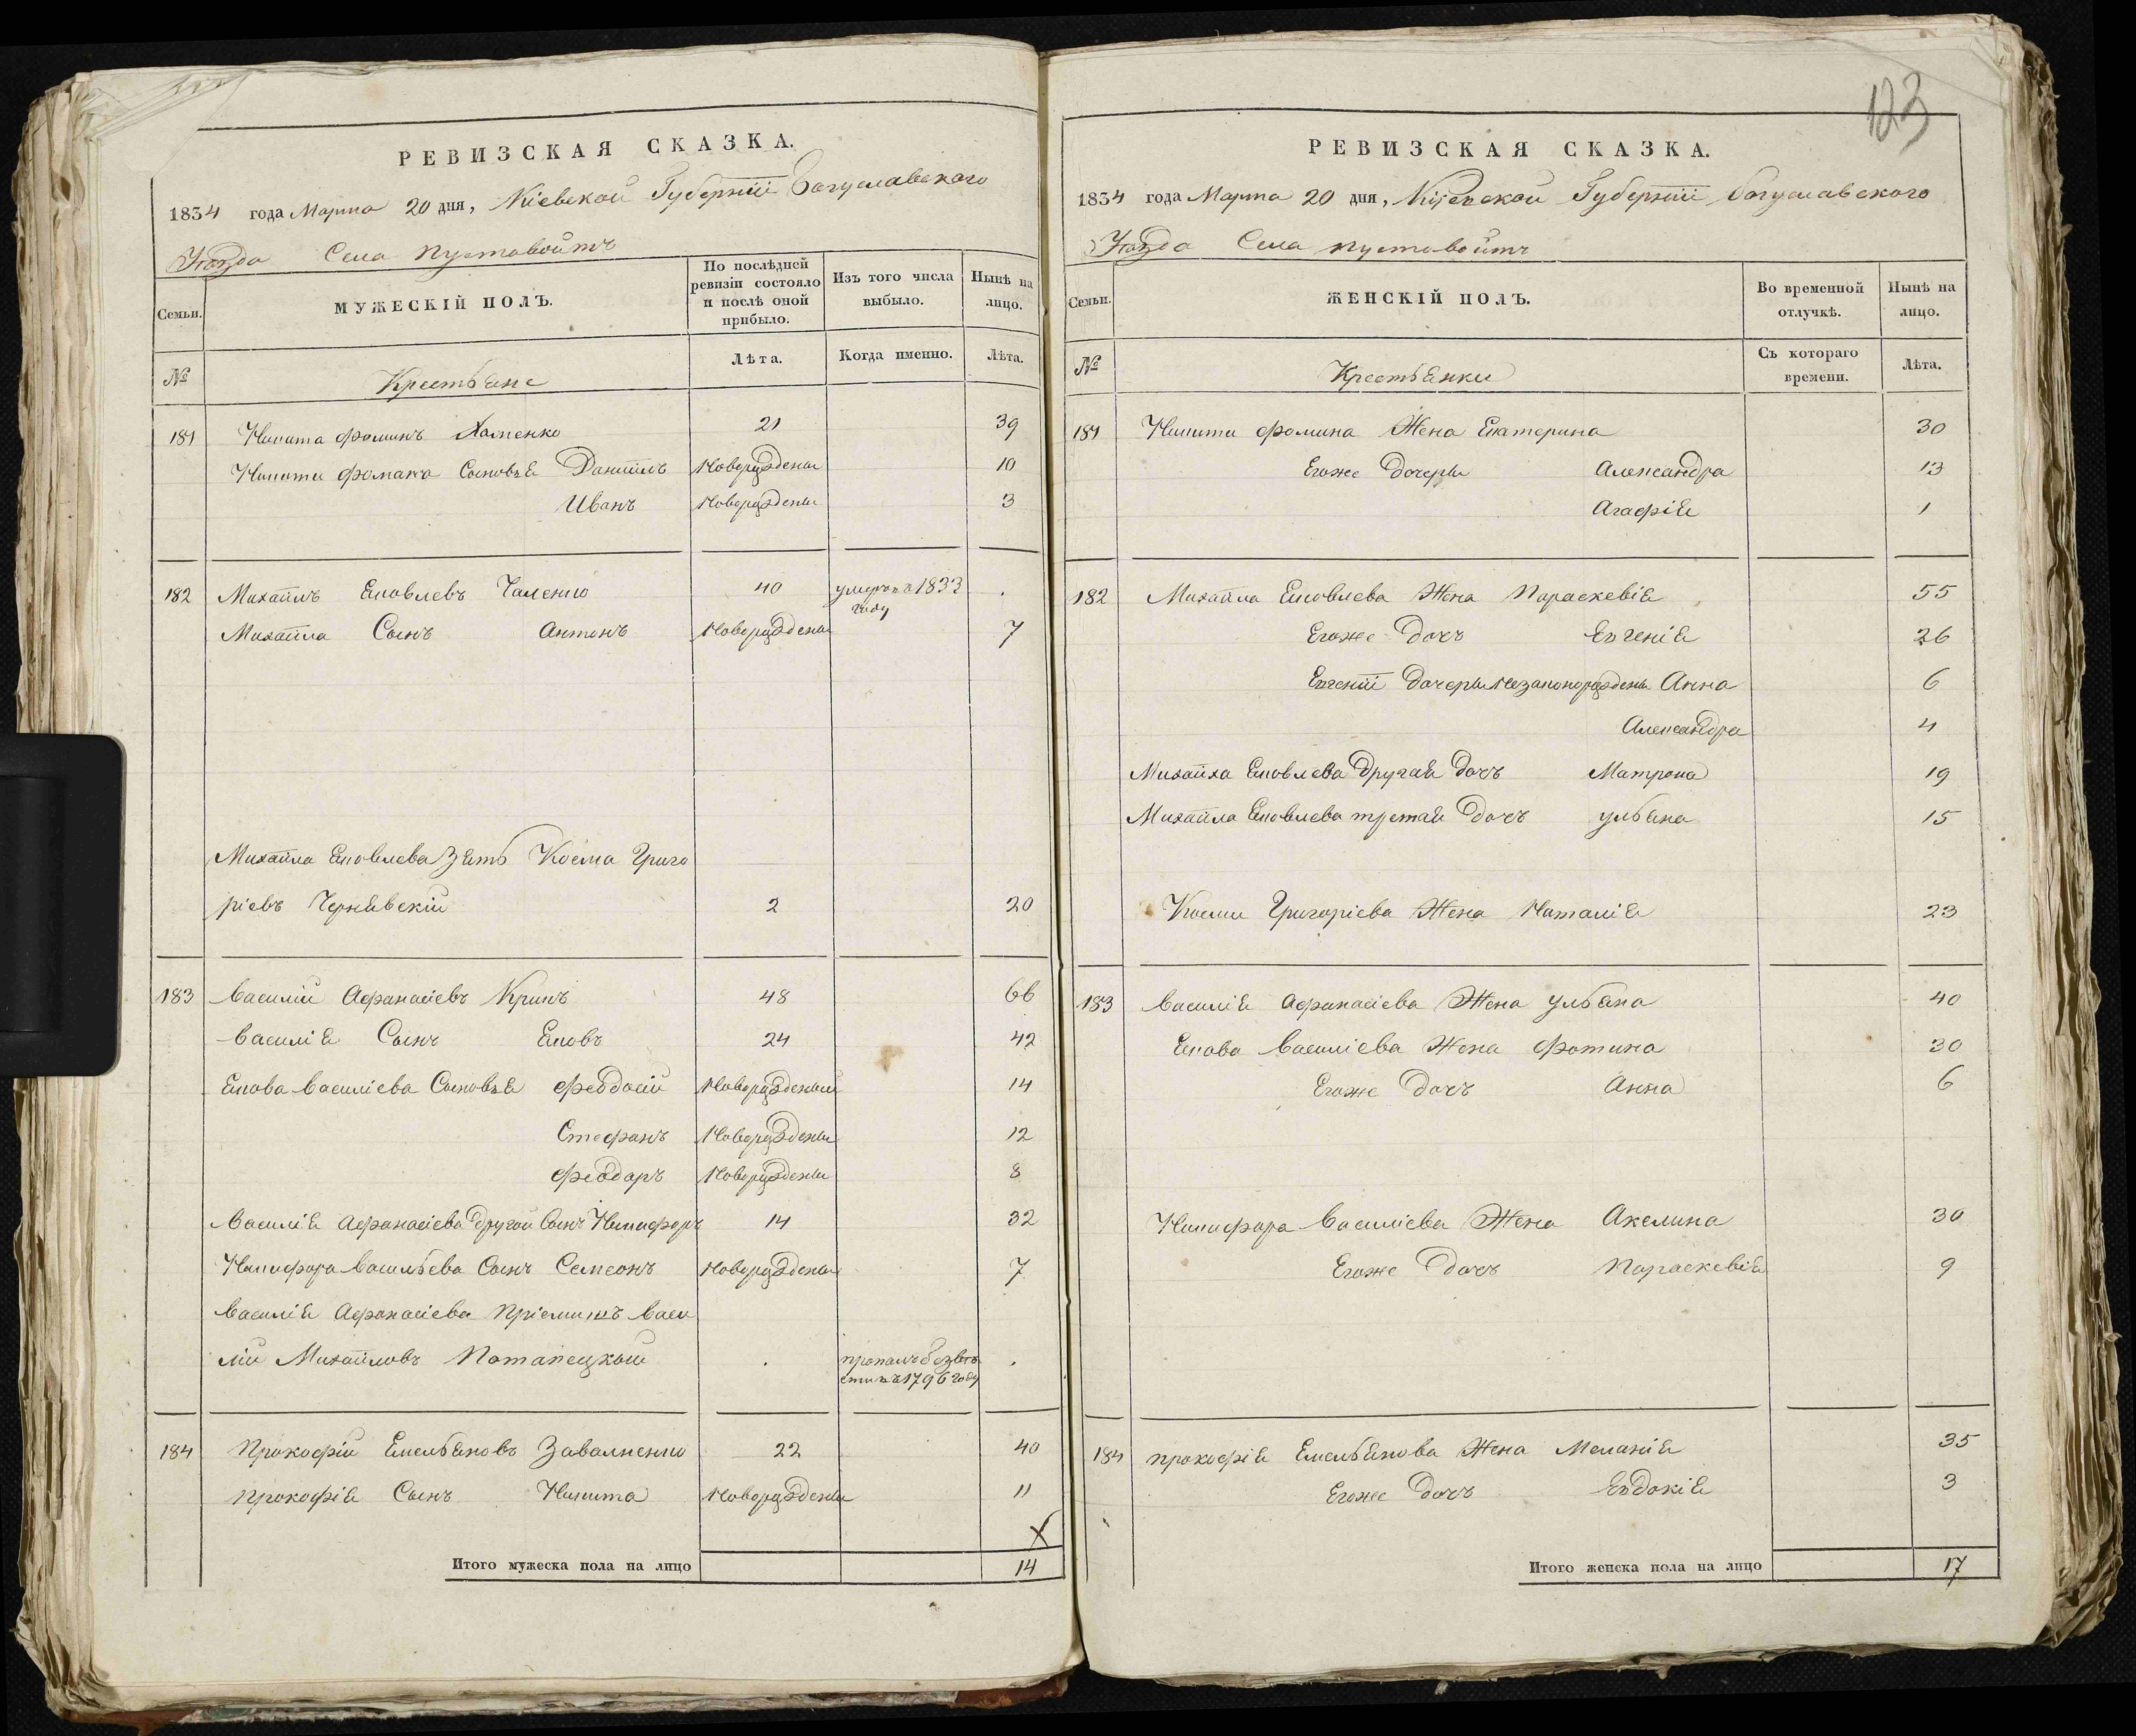 123
РЕВИЗСКАЯ СКАЗКА.
1834 года Марта 20 дня, Кіевской Губерніи Богуславского
Уезда Села Пустовойтъ
Семьи. МУЖЕСКІЙ ПОЛЪ. По послѣдней ревизіи состояло и послѣ оной прибыло. Изъ того числа выбыло. Нынѣ на лицо.
№ Крестьяне Лѣта. Когда именно. Лѣта.
181 Никита Фоминъ 21 39
Никиты Фомина Сыновья Даниилъ Новорожденъ 10
Иванъ Новорожденъ 3
182 Михаилъ Яковлевъ Чаленко 40 умеръ в 1833 году .
Михаила Сынъ Антонъ Новорожденъ 7
Михаила Яковлева Зять Косма Григо
ріевъ Чернявскій 2 20
183 Василій Афанасіевъ Крикъ 48 66
Василія Сынъ Яковъ 24 42
Якова Василіева Сыновья Феодосій Новорожденый 14
Стефанъ Новорожденъ 12
Феодоръ Новорожденъ 8
Василія Афанасіева другой Сынъ Никифоръ 14 32
Никифора Васильева Сынъ Семеонъ Новорожденъ 7
Василія Афанасіева Пріемишъ Васи
лій Михайловъ Потапецкый . пропалъ безвѣ
сти въ 1796 году .
184 Прокофій Емельяновъ Завалненко 22 40
Прокофія Сынъ Никита Новорожденъ 11
Х
Итого мужеска пола на лицо 14
РЕВИЗСКАЯ СКАЗКА.
1834 года Марта 20 дня, Кіевской Губерніи Богуславского
Уезда Села Пустовойтъ
Семьи. ЖЕНСКІЙ ПОЛЪ. Во временной отлучкѣ. Нынѣ на лицо.
№ Крестьянки Съ котораго времени. Лѣта.
181 Никиты Фомина Жена Екатерина 30
Егоже дочеры Александра 13
Агафія 1
182 Михаила Яковлева Жена Параскевія 55
Егоже дочъ Евгенія 26
Евгеніи дочеры незаконорождены Анна 6
Александра 4
Михаила Яковлева другая дочъ Матрона 19
Михаила Яковлева третая дочъ Ульяна 15
Космы Григоріева Жена Наталія 23
183 Василія Афанасіева Жена Ульяна 40
Якова Василіева Жена Фотина 30
Егоже дочъ Анна 6
Никифора Василіева Жена Акелина 30
Егоже дочъ Параскевія 9
184 Прокофія Емельянова Жена Меланія 35
Егоже дочъ Евдокія 3
Итого женска пола на лицо 17